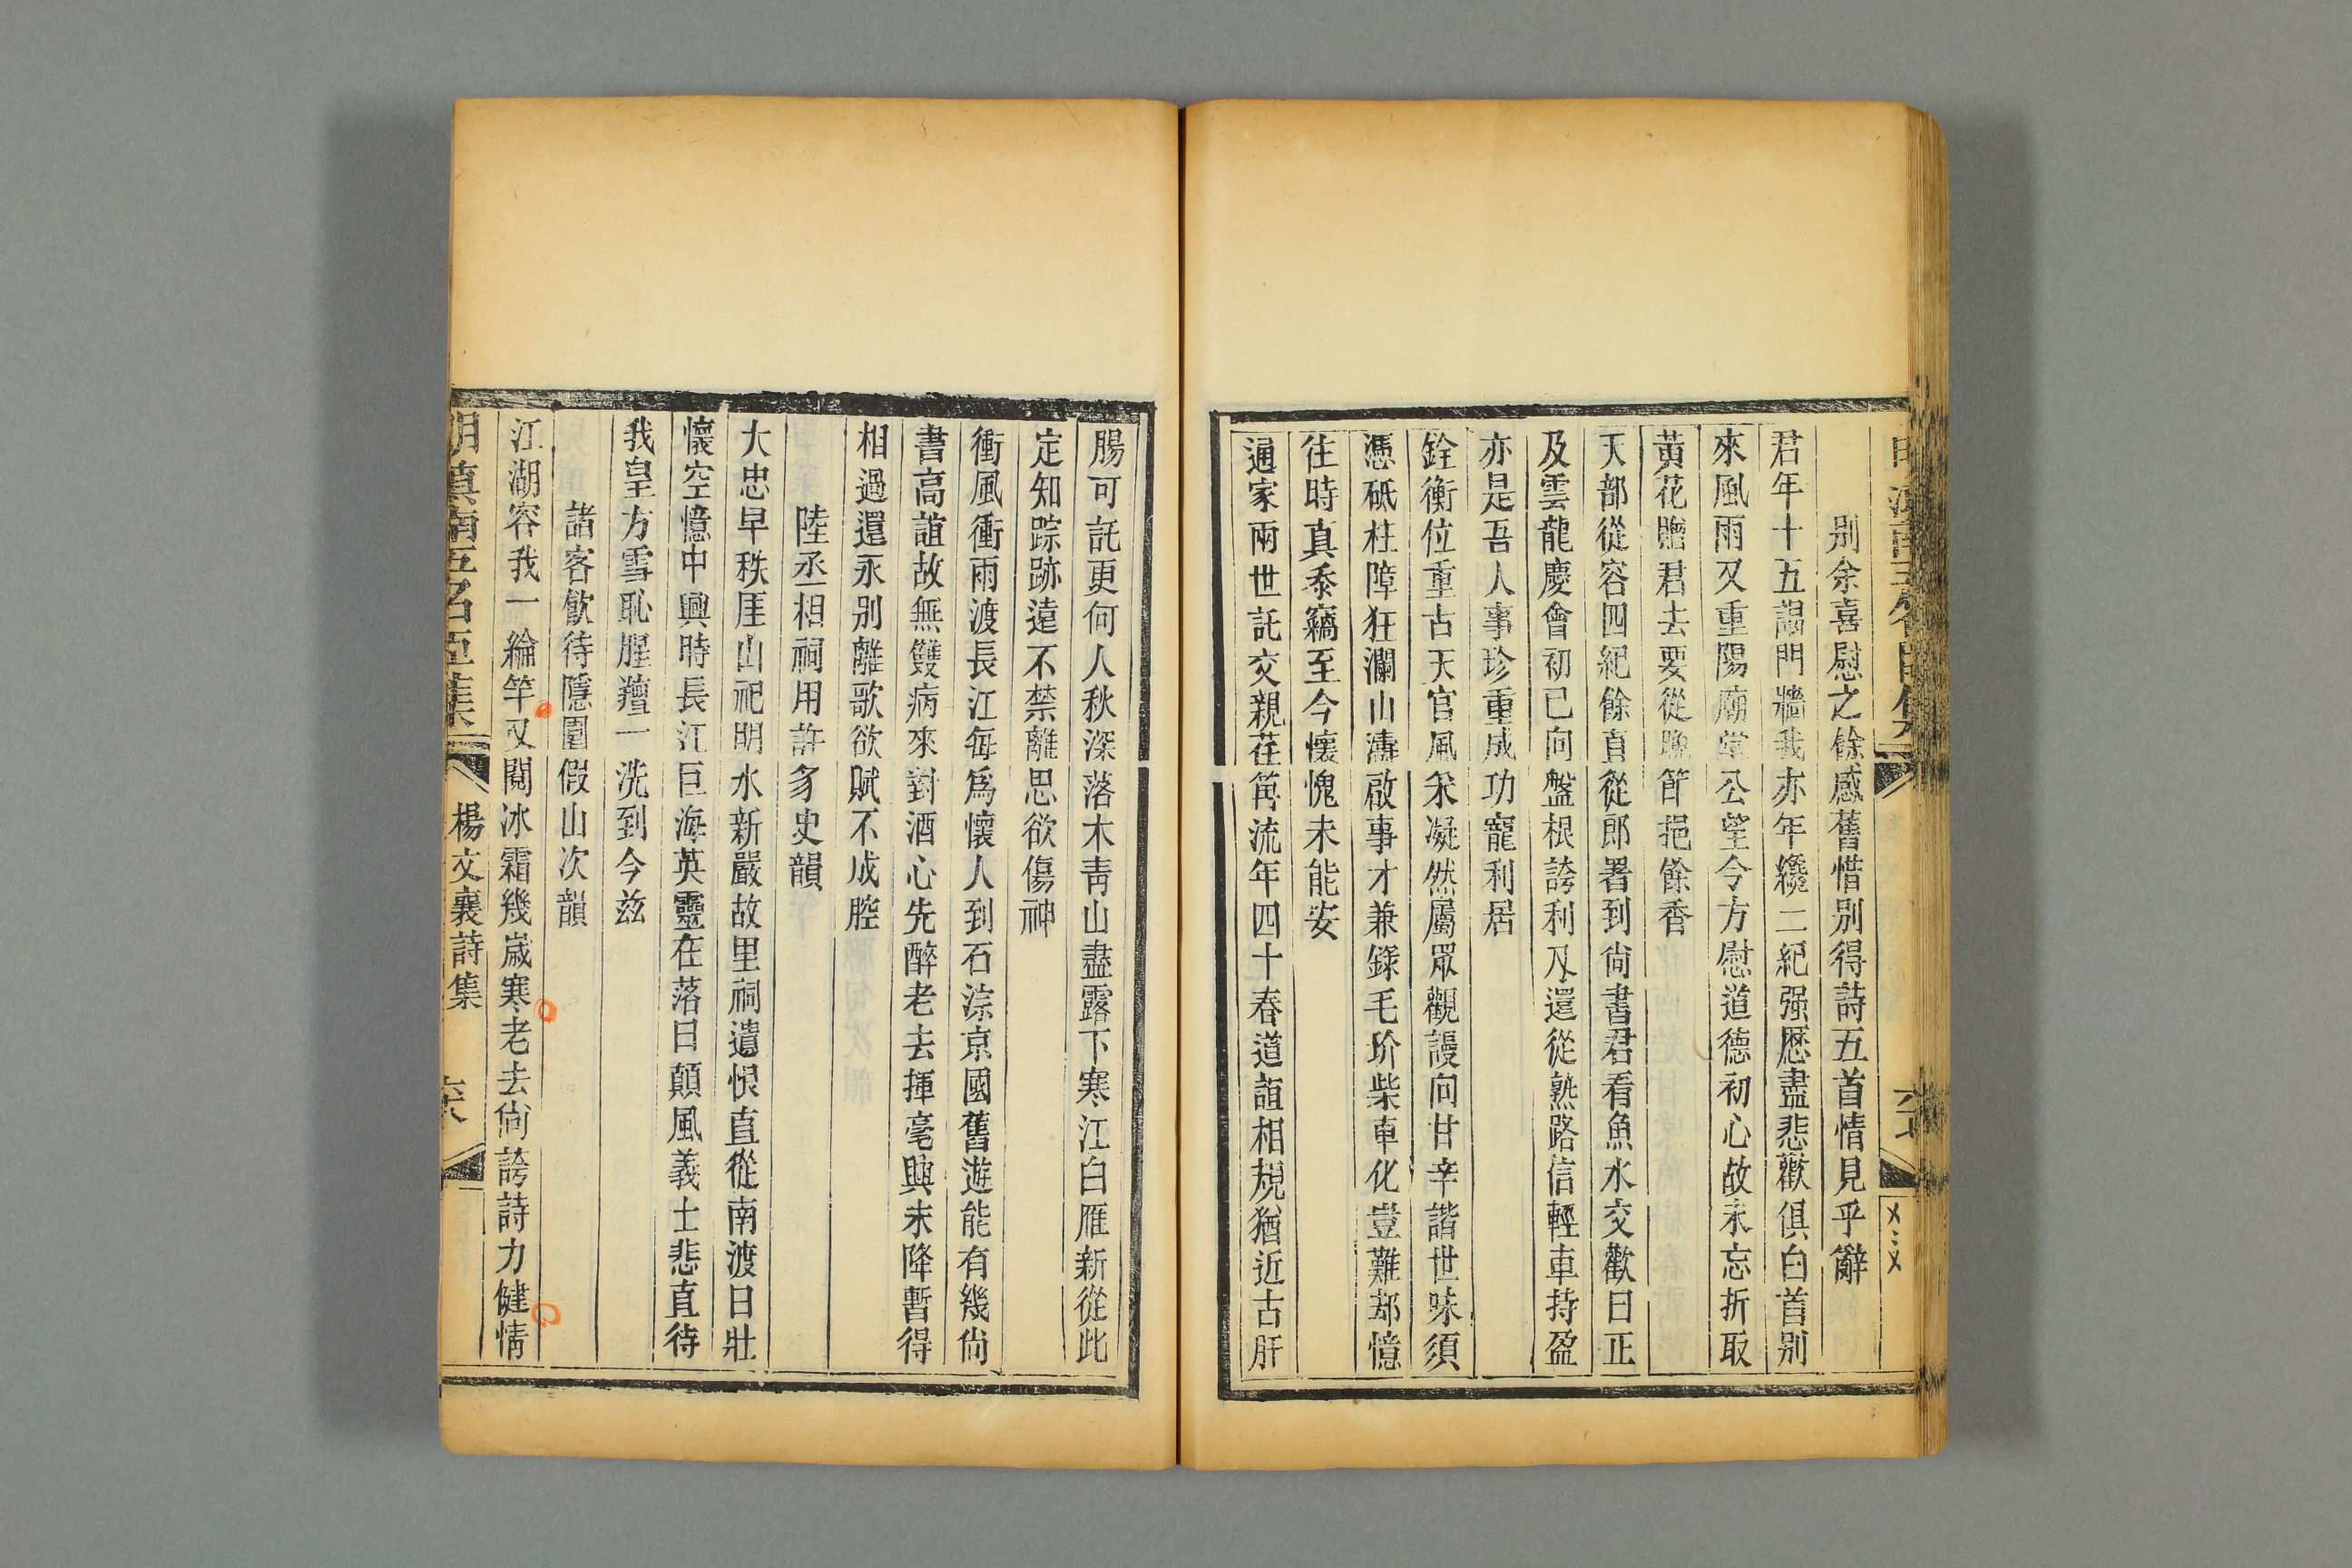 别余喜慰之餘感舊惜别得詩五首情見乎辭
君年十五謁門牆我亦年纔二紀强歷盡悲歡俱白首别
來風雨又重陽廟堂公望今方慰道德初心故未忘折取
黄花贈君去要從晚節挹餘香
天部從容四紀餘直從郎署到尙書君看魚水交歡日正
及雲龍慶會初已向盤根誇利刄還從熟路信輕車持盈
亦是吾人事珍重成功寵利居
銓衡位重古天官風采凝然屬眾觀謾向甘辛諧世味須
憑砥柱障狂瀾山濤啟事才兼鎍毛玠柴車化豈難却憶
往時真忝竊至今懷愧未能安
通家兩世託交親荏苒流年四十春道誼相規猶近古肝
腸可託更何人秋深落木青山盡露下寒江白雁新從此
定知踪跡遠不禁離思欲傷神
衝風衝雨渡長江每爲懷人到石淙京國舊遊能有幾尙
書高誼故無雙病來對酒心先醉老去揮毫興未降暫得
相過還永别離歌欲賦不成腔
陸丞相祠用許豸史韻
大忠早秩厓山祀明水新嚴故里祠遺恨直從南渡日壯
懷空憶中興時長江巨海英靈在落日顛風義士悲直待
我皇方雪恥腥羶一洗到今兹
諸客飲待隱園假山次韻
江湖容我一綸竿又閱冰霜幾歲寒老去尙誇詩力健情
明滇南五名臣集 楊文襄詩集 六六